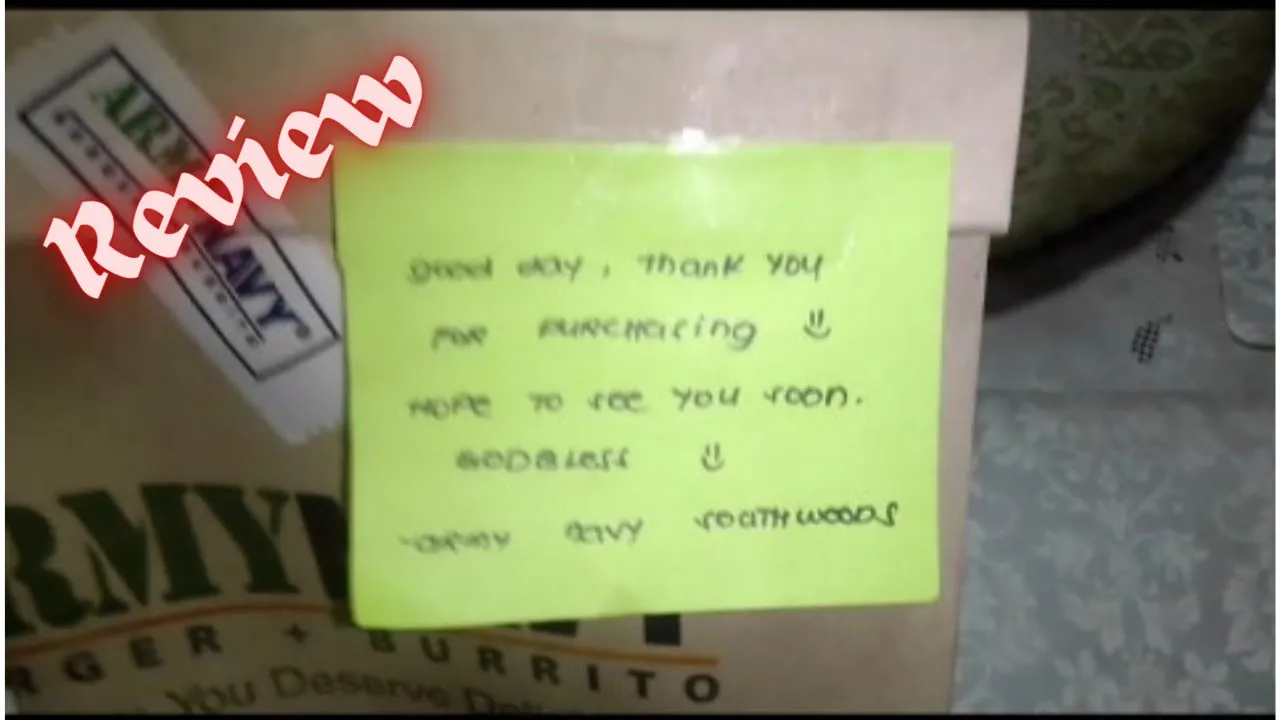 Review
ARMY NAVY®
good day, Thank YOU
FOR PURCHASing :)
HOPE TO see YOU soon.
GODBLESS :)
-army navy SOUTHWOODS
ARMYNAVY
BURGER + BURRITO
You Deserve